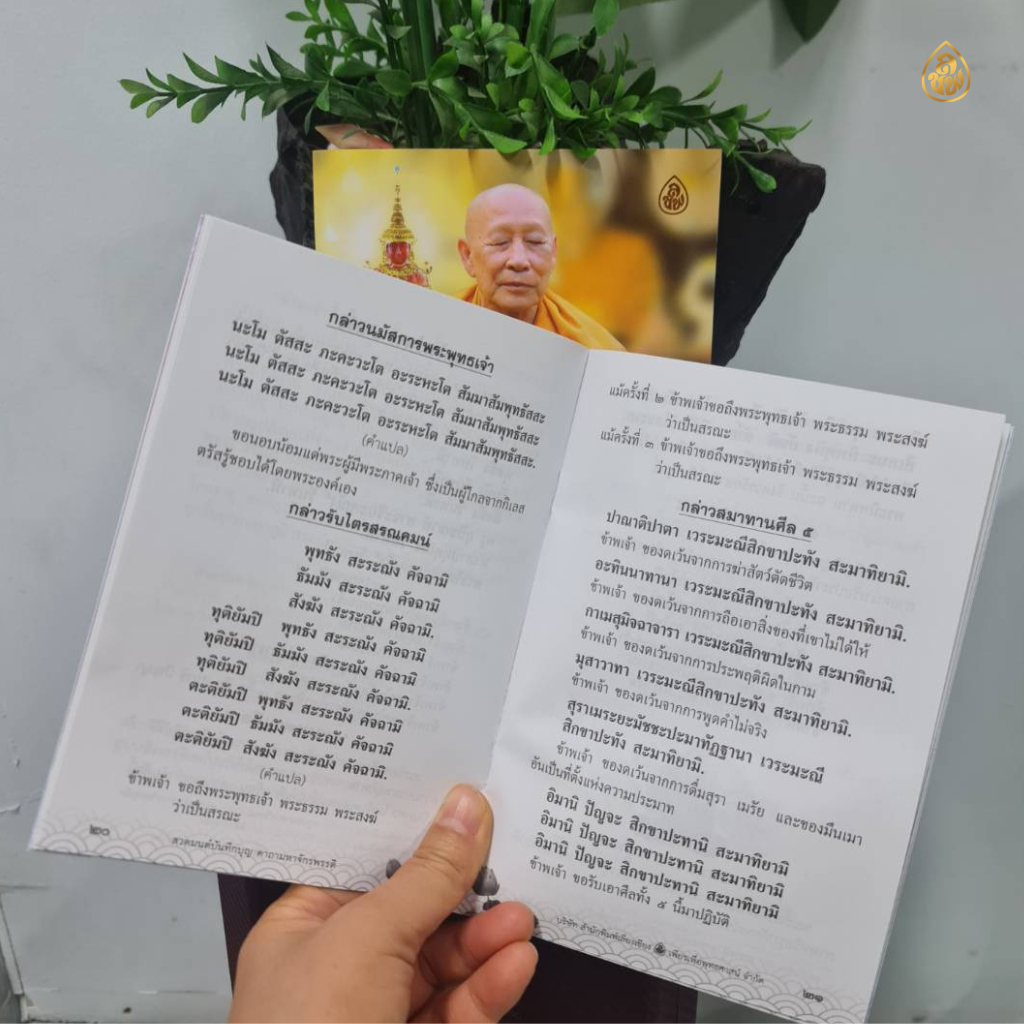 กล่าวนมัสการพระพุทธเจ้า
นะโม ตัสสะ ภะคะวะโต อะระหะโต สัมมาสัมพุทธัสสะ
นะโม ตัสสะ ภะคะวะโต อะระหะโต สัมมาสัมพุทธัสสะ
นะโม ตัสสะ ภะคะวะโต อะระหะโต สัมมาสัมพุทธัสสะ.
(คำแปล)
ขอนอบน้อมแด่พระผู้มีพระภาคเจ้า ซึ่งเป็นผู้ไกลจากกิเลส
ตรัสรู้ชอบได้โดยพระองค์เอง
กล่าวรับไตรสรณคมน์
พุทธัง สะระณัง คัจฉามิ
ธัมมัง สะระณัง คัจฉามิ
สังฆัง สะระณัง คัจฉามิ.
ทุติยัมปิ พุทธัง สะระณัง คัจฉามิ
ทุติยัมปิ ธัมมัง สะระณัง คัจฉามิ
ทุติยัมปิ สังฆัง สะระณัง คัจฉามิ.
ตะติยัมปิ พุทธัง สะระณัง คัจฉามิ
ตะติยัมปิ ธัมมัง สะระณัง คัจฉามิ
ตะติยัมปิ สังฆัง สะระณัง คัจฉามิ.
(คำแปล)
ข้าพเจ้า ขอถึงพระพุทธเจ้า พระธรรม พระสงฆ์
ว่าเป็นสรณะ
๒๐
สวดมนต์บันทึกบุญ คาถามหาจักรพรรดิ
แม้ครั้งที่ ๒ ข้าพเจ้าขอถึงพระพุทธเจ้า พระธรรม พระสงฆ์
ว่าเป็นสรณะ
แม้ครั้งที่ ๓ ข้าพเจ้าขอถึงพระพุทธเจ้า พระธรรม พระสงฆ์
ว่าเป็นสรณะ
กล่าวสมาทานศีล ๕
ปาณาติปาตา เวระมะณีสิกขาปะทัง สะมาทิยามิ.
ข้าพเจ้า ของดเว้นจากการฆ่าสัตว์ตัดชีวิต
อะทินนาทานา เวระมะณีสิกขาปะทัง สะมาทิยามิ.
ข้าพเจ้า ของดเว้นจากการถือเอาสิ่งของที่เขาไม่ได้ให้
กาเมสุมิจฉาจารา เวระมะณีสิกขาปะทัง สะมาทิยามิ.
ข้าพเจ้า ของดเว้นจากการประพฤติผิดในกาม
มุสาวาทา เวระมะณีสิกขาปะทัง สะมาทิยามิ.
ข้าพเจ้า ของดเว้นจากการพูดคำไม่จริง
สุราเมระยะมัชชะปะมาทัฏฐานา เวระมะณี
สิกขาปะทัง สะมาทิยามิ.
ข้าพเจ้า ของดเว้นจากการดื่มสุรา เมรัย และของมึนเมา
อันเป็นที่ตั้งแห่งความประมาท
อิมานิ ปัญจะ สิกขาปะทานิ สะมาทิยามิ
อิมานิ ปัญจะ สิกขาปะทานิ สะมาทิยามิ
อิมานิ ปัญจะ สิกขาปะทานิ สะมาทิยามิ
ข้าพเจ้า ขอรับเอาศีลทั้ง ๕ นี้มาปฏิบัติ
บริษัท สำนักพิมพ์เลี่ยงเชียง เพียรเพื่อพุทธศาสน์ จำกัด
๒๑